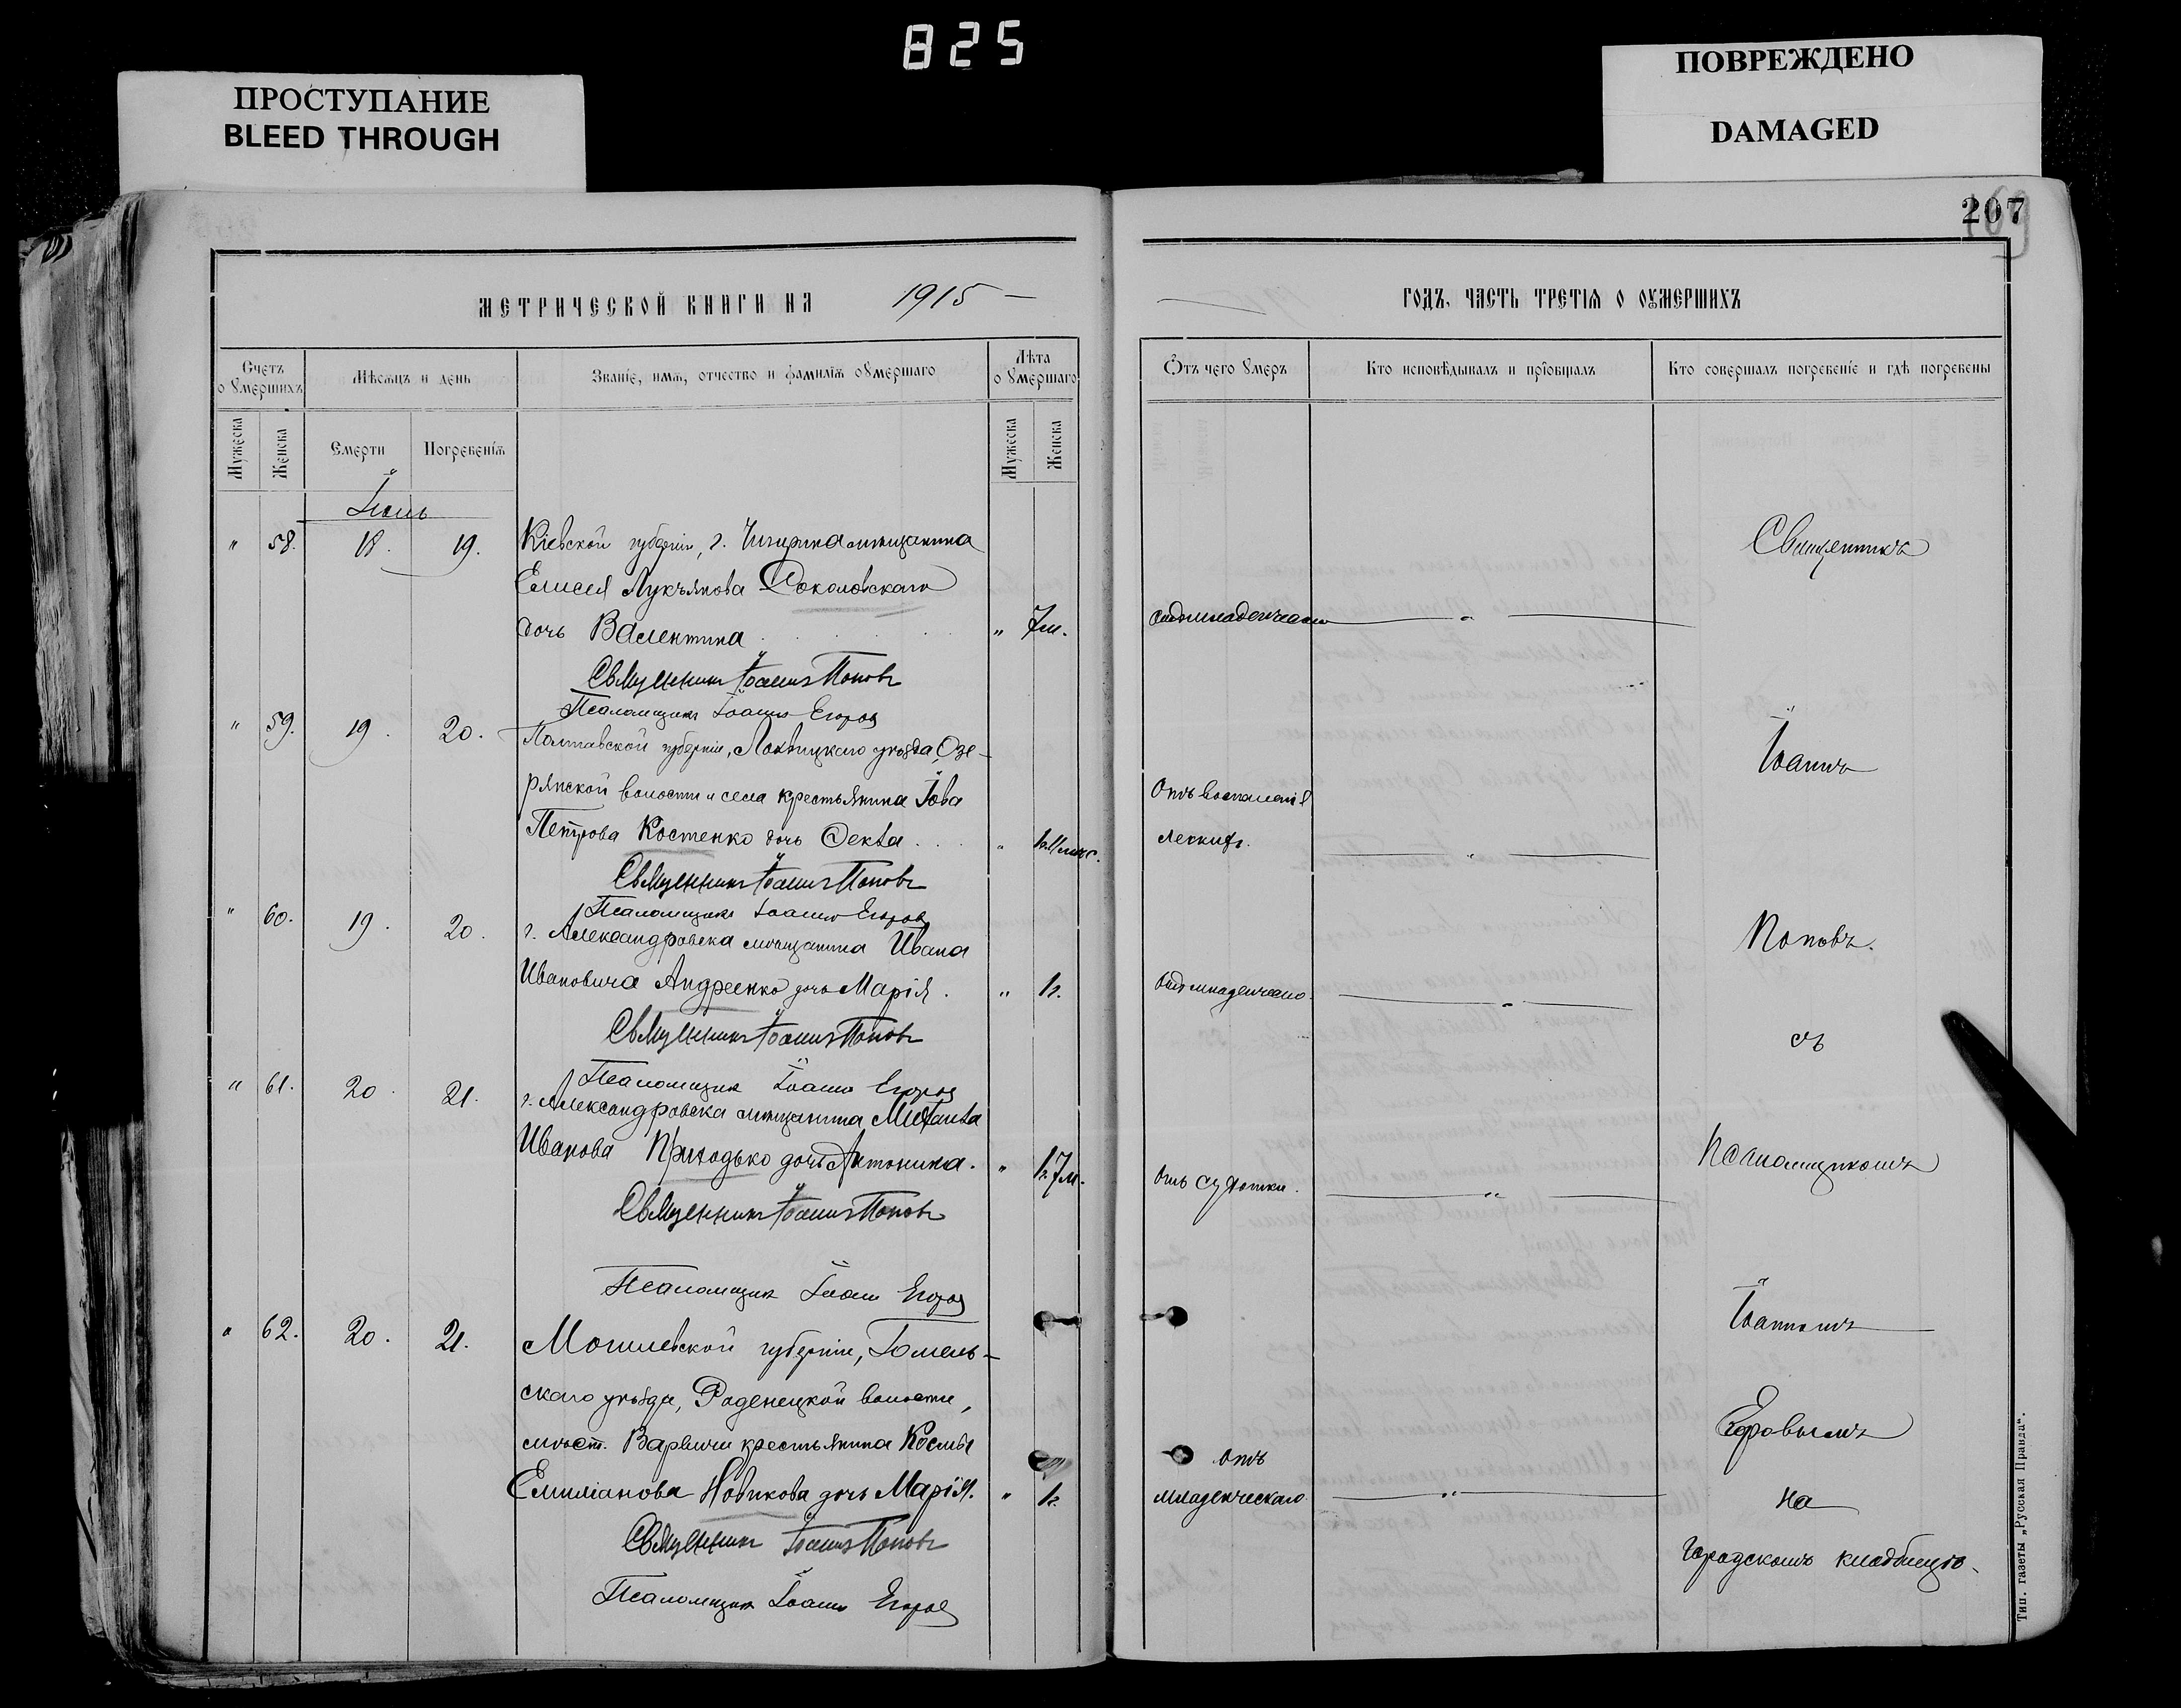 825
ПРОСТУПАНИЕ
BLEED THROUGH
ПОВРЕЖДЕНО
DAMAGED
207
МЕТРИЧЕСКОЙ КНИГИ НА 1915
Счетъ о умершихъ
Мѣсяцъ и день
Званіе, имя, отчество и фамилія умершаго
Лѣта умершаго
Мужеска
Женска
Смерти
Погребенія
Мужеска
Женска
Іюль
" 58. 18. 19. Кіевской губерніи, г. Чигирина мѣщанина
Елисея Лукъянова Соколовскаго
дочь Валентина " 7 м.
Священникъ Іоаннъ Поповъ
Псаломщикъ Іоаннъ Егоров
" 59. 19. 20. Полтавской губерніи, Лохвицкаго уѣзда, Озе-
рянской волости и села крестьянина Іова
Петрова Костенко дочь Ѳекла "
Священникъ Іоаннъ Поповъ
Псаломщикъ Іоаннъ Егоров
" 60. 19. 20. г. Александровска мѣщанина Ивана
Ивановича Андреенко дочь Марія. " 1 г.
Священникъ Іоаннъ Поповъ
Псаломщикъ Іоаннъ Егоров
" 61. 20. 21. г. Александровска мѣщанина Михаила
Иванова Приходько дочь Антонина. " 1 г. 7 м.
Священникъ Іоаннъ Поповъ
Псаломщикъ Іоаннъ Егоров
" 62. 20. 21. Могилевской губерніи, Гомель-
скаго уѣзда, волости,
мѣст. крестьянина Космы
Емиліанова Новикова дочь Марія. " 1 г.
Священникъ Іоаннъ Поповъ
Псаломщикъ Іоаннъ Егоров
ГОДЪ, ЧАСТЬ ТРЕТІЯ О ОУМЕРШИХЪ
Отъ чего умеръ
Кто исповѣдывалъ и пріобщалъ
Кто совершалъ погребеніе и гдѣ погребены
Священникъ
отъ младенческаго "
Іоаннъ
Отъ воспаленія
легкихъ. "
Поповъ.
отъ младенческаго "
съ
Псаломщикомъ
отъ сухотки. "
Іоанномъ
Егоровымъ
отъ
младенческаго "
на
городскомъ кладбищѣ.
Тип. газеты „Русская Правда“.